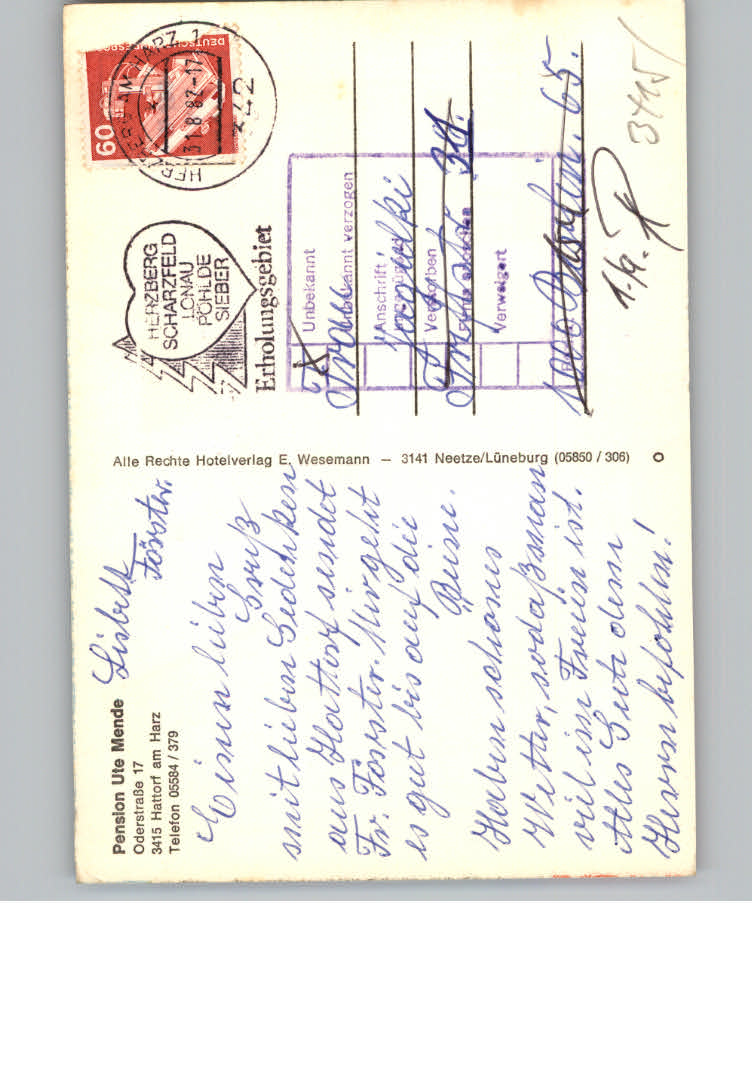 Pension Ute Mende
Oderstraße 17
3415 Hattorf am Harz
Telefon 05584 / 379
Lisbett
Förster.
Einen lieben
Gruß
mit lieben Gedenken
aus Hattorf sendet
Fr. Förster. Mir geht
es gut bis auf die
Beine.
Haben schönes
Wetter, sodaß man
viel im Freien ist.
Alles Gute dem
Herrn befohlen!
Alle Rechte Hotelverlag E. Wesemann — 3141 Neetze/Lüneburg (05850 / 306)
60
DEUTSCHE BUNDESPOST
HERZBERG AM HARZ 1
31.8.82-17
HERZBERG
SCHARZFELD
LONAU
PÖHLDE
SIEBER
Erholungsgebiet
X
Unbekannt
Unbekannt verzogen
Anschrift
Verstorben
Verweigert
Frau
38.
1000 Berlin. 65.
1.9.
3415